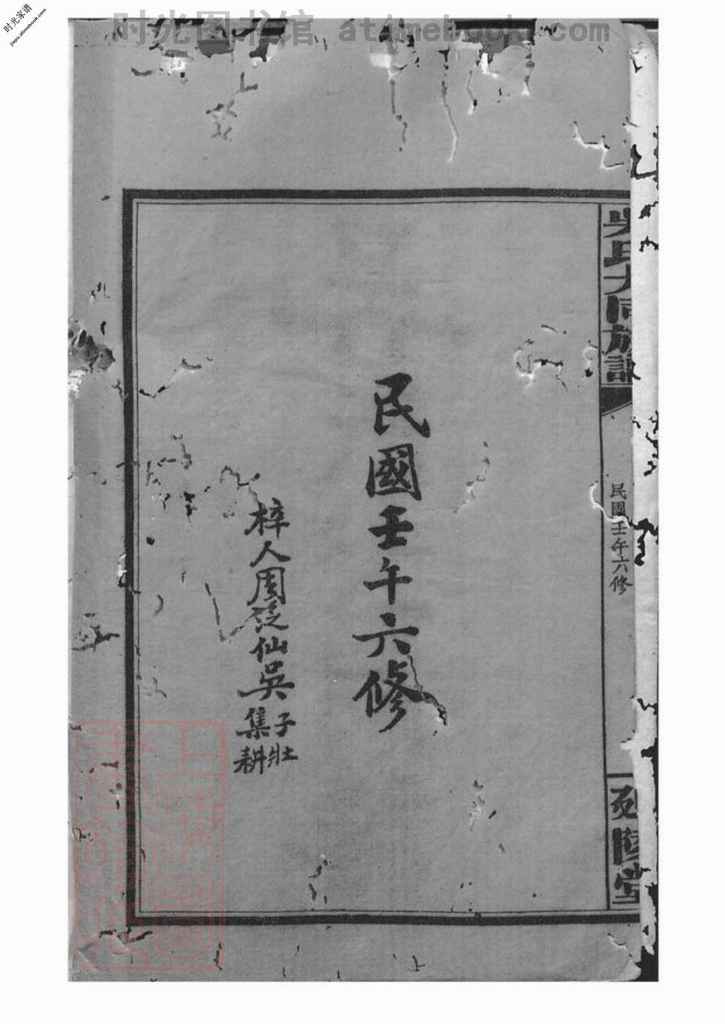 时光图书馆 atimebook.com
时光家谱
吴氏大同族譜
民國壬午六修
堂
民國壬午六修
梓人周筏仙吳
子壯
集耕